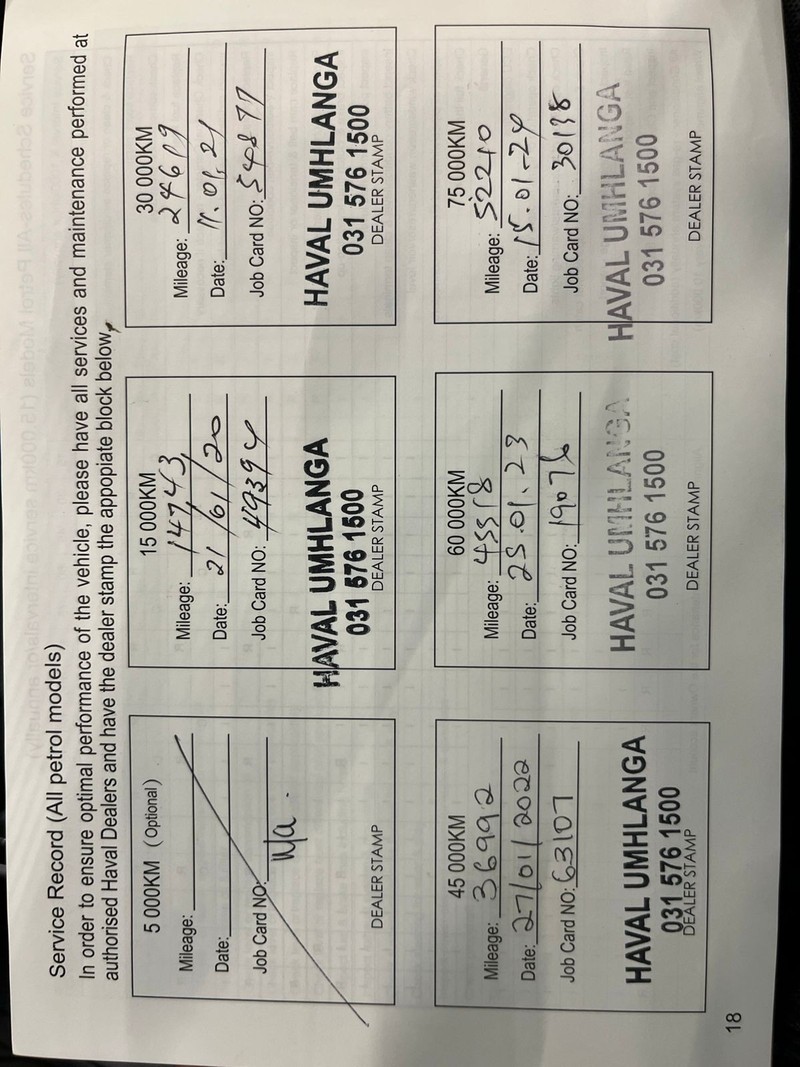 Service Record (All petrol models)
In order to ensure optimal performance of the vehicle, please have all services and maintenance performed at
authorised Haval Dealers and have the dealer stamp the appopiate block below,
5 000KM (Optional)
Mileage:
Date:
Job Card NO:
n/a.
DEALER STAMP
15 000KM
Mileage: 14743
Date: 21/01/20
Job Card NO: 49394
HAVAL UMHLANGA
031 576 1500
DEALER STAMP
30 000KM
Mileage: 24619
Date: 11.01.21
Job Card NO: 54877
HAVAL UMHLANGA
031 576 1500
DEALER STAMP
45 000KM
Mileage: 36992
Date: 27/01/2022
Job Card NO: 63107
HAVAL UMHLANGA
031 576 1500
DEALER STAMP
60 000KM
Mileage: 45518
Date: 25.01.23
Job Card NO: 19076
HAVAL UMHLANGA
031 576 1500
DEALER STAMP
75 000KM
Mileage: 52210
Date: 15.01.24
Job Card NO: 30138
HAVAL UMHLANGA
031 576 1500
DEALER STAMP
18